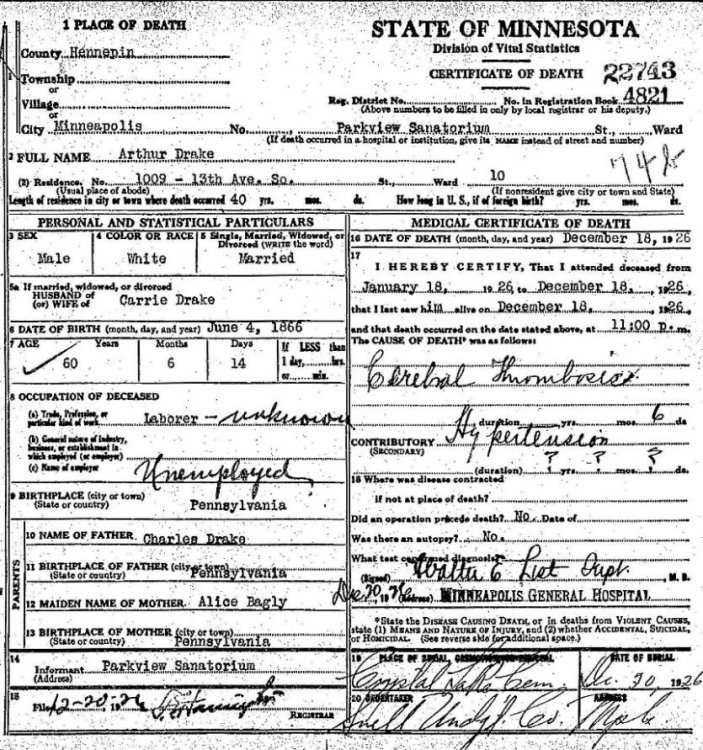 1 PLACE OF DEATH
County Hennepin
Township
or
Village
or
City Minneapolis No. Parkview Sanatorium St., Ward
(If death occurred in a hospital or institution, give its NAME instead of street and number)
STATE OF MINNESOTA
Division of Vital Statistics
CERTIFICATE OF DEATH
22743
Reg. District No. No. in Registration Book 4821
(Above numbers to be filled in only by local registrar or his deputy.)
2 FULL NAME Arthur Drake
(2) Residence. No. 1009 - 13th Ave. So. St., Ward 10
(Usual place of abode) (If nonresident give city or town and State)
Length of residence in city or town where death occurred 40 yrs. mos. ds. How long in U. S., if of foreign birth? yrs. mos. ds.
PERSONAL AND STATISTICAL PARTICULARS
3 SEX 4 COLOR OR RACE 5 Single, Married, Widowed, or Divorced (WRITE the word)
Male White Married
5a If married, widowed, or divorced
HUSBAND of
(or) WIFE of Carrie Drake
6 DATE OF BIRTH (month, day, and year) June 4, 1866
7 AGE Years Months Days If LESS than
1 day, hrs.
or min.
60 6 14
8 OCCUPATION OF DECEASED
(a) Trade, Profession, or
particular kind of work Laborer - unknown
(b) General nature of Industry,
business, or establishment in
which employed (or employer)
(c) Name of employer Unemployed
9 BIRTHPLACE (city or town)
(State or country) Pennsylvania
PARENTS
10 NAME OF FATHER Charles Drake
11 BIRTHPLACE OF FATHER (city or town)
(State or country) Pennsylvania
12 MAIDEN NAME OF MOTHER Alice Bagly
13 BIRTHPLACE OF MOTHER (city or town)
(State or country) Pennsylvania
14
Informant Parkview Sanatorium
(Address)
15
Filed 12-20-1926
REGISTRAR
MEDICAL CERTIFICATE OF DEATH
16 DATE OF DEATH (month, day, and year) December 18, 1926
17
I HEREBY CERTIFY, That I attended deceased from
January 18, 1926, to December 18, 1926,
that I last saw him alive on December 18, 1926,
and that death occurred on the date stated above, at 11:00 P.m.
The CAUSE OF DEATH* was as follows:
Cerebral Thrombosis
duration yrs. mos. 6 ds.
CONTRIBUTORY Hypertension
(SECONDARY)
(duration) ? yrs. ? mos. ? ds.
18 Where was disease contracted
if not at place of death?
Did an operation precede death? No. Date of
Was there an autopsy? No.
What test confirmed diagnosis?
(Signed) Walter E List Supt. M. D.
Dec 20, 1926 (Address) MINNEAPOLIS GENERAL HOSPITAL
*State the DISEASE CAUSING DEATH, or in deaths from VIOLENT CAUSES,
state (1) MEANS AND NATURE OF INJURY, and (2) whether ACCIDENTAL, SUICIDAL,
or HOMICIDAL. (See reverse side for additional space.)
19 PLACE OF BURIAL, CREMATION OR REMOVAL DATE OF BURIAL
Crystal Lake Cem. Dec. 20, 1926
20 UNDERTAKER ADDRESS
Snell Undg. Co. Mpls